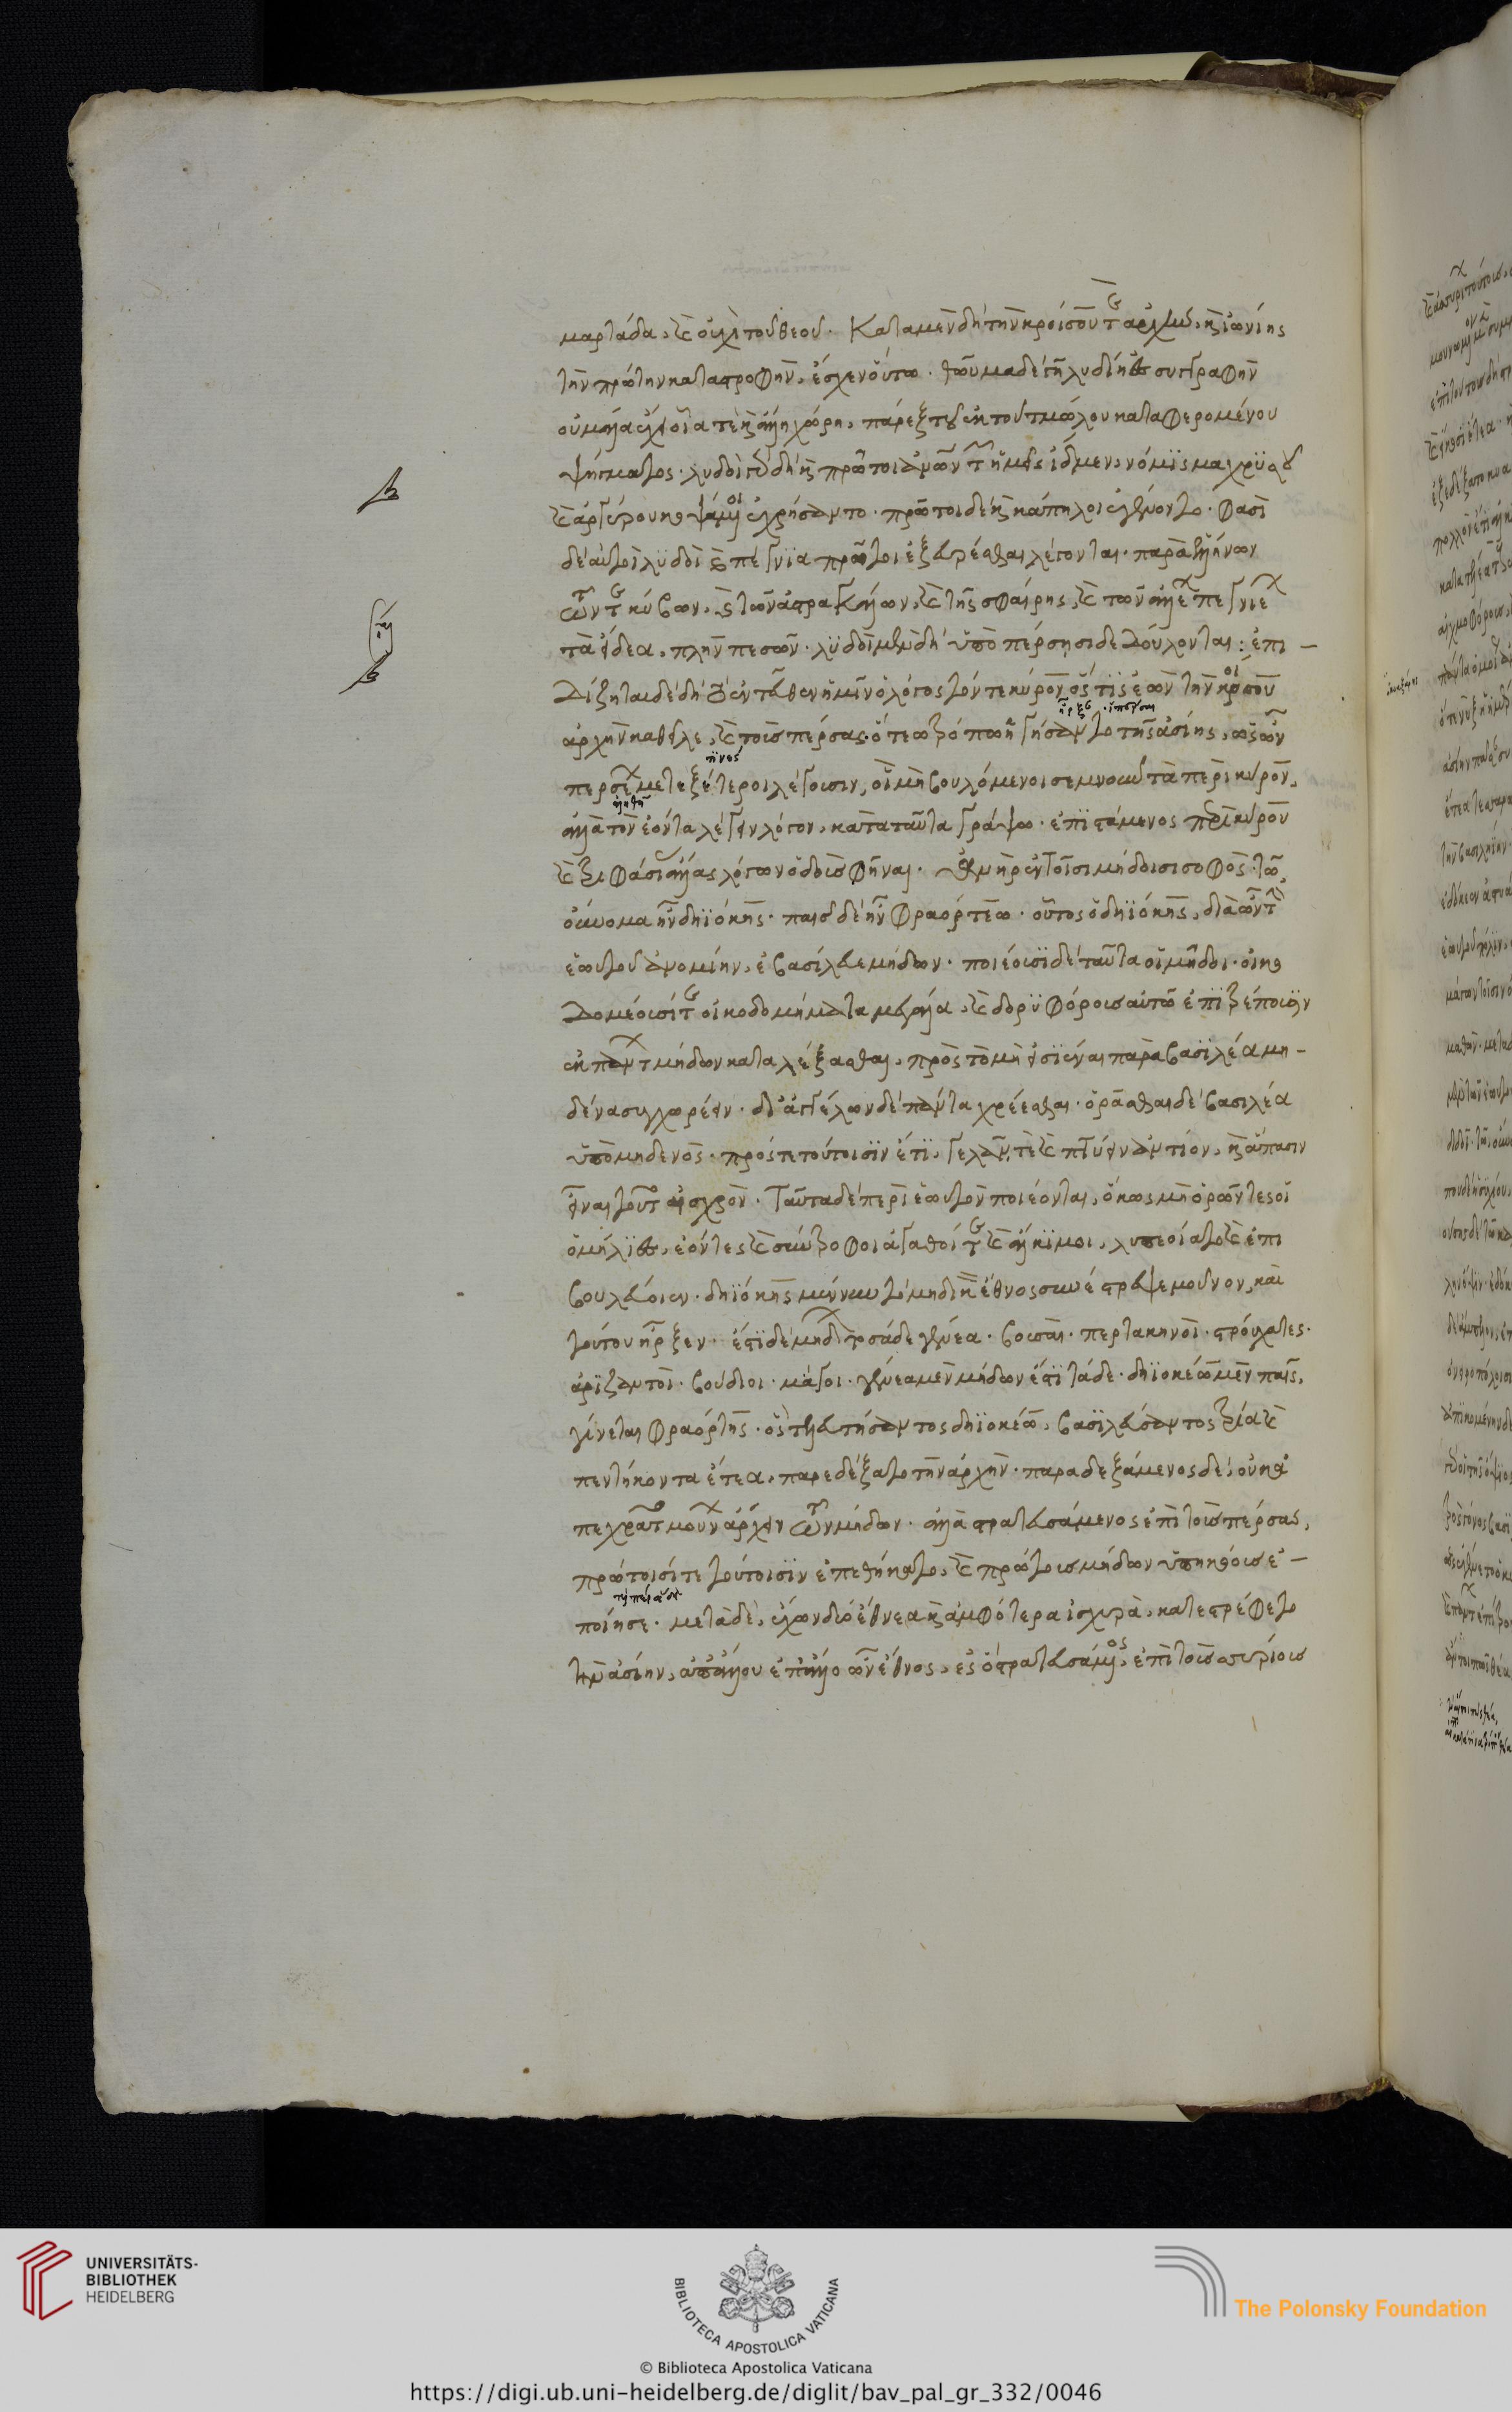 μαρτάδα, καὶ οὐχὶ τοῦ θεοῦ. Κατὰ μὲν δὴ τὴν κροίσου τε ἀρχὴν, καὶ ἰωνίης
τὴν πρώτην καταστροφὴν, ἔσχεν οὕτω. θώυμα δὲ γῆ λυδίη ἐς συγγραφὴν
οὐ μάλα ἔχει οἷά τε καὶ ἄλλη χώρη, πάρεξ τοῦ ἐκ τοῦ τμώλου καταφερομένου
ψήγματος. λυδοὶ γὰρ δὴ καὶ πρῶτοι ἀνθρώπων τῶν ἡμεῖς ἴδμεν, νόμισμα χρυσοῦ
καὶ ἀργύρου κοψάμενοι ἐχρήσαντο. πρῶτοι δὲ καὶ κάπηλοι ἐγένοντο. φασὶ
δὲ αὐτοὶ λυδοὶ πέγνια πρῶτοι ἐξευρέεσθαι λέγονται. παρὰ ἑλλήνων
τῶν τε κύβων, καὶ τῶν ἀστραγάλων, καὶ τῆς σφαίρης, καὶ τῶν ἀλλέων πεγνιέων
τὰ εἴδεα, πλὴν πεσῶν. λυδοὶ μὲν δὴ ὑπὸ πέρσησι δεδούλονται: ἐπι-
δίζηται δὲ δὴ τὸ ἐντεῦθεν ἡμῖν ὁ λόγος τόν τε κύρον ὅστις ἐὼν τὴν κροίσου
ἀρχὴν καθεῖλε, καὶ τοὺς πέρσας ὅτεω τρόπω ἡγήσαντο τῆς ἀσίης, ὡς ὦν
περσέων μετεξέτεροι λέγουσιν, οἱ μὴ βουλόμενοι σεμνοῦν τὰ περὶ κύρον,
ἀλλὰ τὸν ἐόντα λέγειν λόγον, κατὰ ταῦτα γράψω. ἐπιστάμενος περὶ κύρου
καὶ τριφασίας ἄλλας λόγων ὁδοὺς φῆναι. ἀνὴρ ἐν τοῖσι μήδοισι σοφὸς. τῶ
οὔνομα ἦν δηϊόκης. παῖς δὲ ἦν φραόρτεω. οὗτος ὁ δηϊόκης, διὰ
ἑωυτοῦ εὐνομίην, ἐβασίλευε μήδων. ποιέουσι δὲ ταῦτα οἱ μῆδοι. οἰκο
δομέουσί τε οἰκοδομήματα μεγάλα, καὶ δορυφόρους αὐτῶ ἐπιτρέπουσιν
ἐκ πάντων μήδων καταλέξασθαι, πρὸς τὸ μὴ εἰσιέναι παρὰ βασιλέα μη-
δένα συγχωρέειν. δι' ἀγγέλων δὲ πάντα χρέεσθαι. ὁρᾶσθαι δὲ βασιλέα
ὑπὸ μηδενὸς. πρός τε τούτοισιν ἔτι, γελᾶν τε καὶ πτύειν ἀντίον, καὶ ἅπασιν
εἶναι τοῦτο αἰσχρὸν. Ταῦτα δὲ περὶ ἑωυτὸν ποιέονται, ὅκως μὴ ὁρῶντες οἱ
ὁμήλικες, ἐόντες καὶ σύντροφοι ἀγαθοί τε καὶ ἄλκιμοι, λυπεοίατο καὶ ἐπι
βουλεύοιεν. δηϊόκης μέν νυν τὸ μηδικὸν ἔθνος συνέστρεψε μοῦνον, καὶ
τούτου ἦρξεν. ἔστι δὲ μήδων τοσάδε γένεα. βοῦσαι. περτακηνοὶ. στρούχατες.
ἀριζαντοὶ. βούδιοι. μάγοι. γένεα μὲν μήδων ἐστὶ τάδε. δηϊοκέω μὲν παῖς,
γίνεται φραόρτης. ὃς τελευτήσαντος δηϊοκέω, βασιλεύσαντος τρία καὶ
πεντήκοντα ἔτεα, παρεδέξατο τὴν ἀρχὴν. παραδεξάμενος δὲ, οὐκ ἀ
πεχρᾶτο μούνων ἄρχειν τῶν μήδων. ἀλλὰ στρατευσάμενος ἐπὶ τοὺς πέρσας,
πρώτοισί τε τούτοισιν ἐπεθήκατο, καὶ πρώτους μήδων ὑπηκόους ἐ-
ποίησε. μετὰ δὲ, ἔχων δύο ἔθνεα καὶ ἀμφότερα ἰσχυρὰ, κατεστρέφετο
τὴν ἀσίην, ἀπ' ἄλλου ἐπ' ἄλλο ὢν ἔθνος, ἐς ὃ στρατευσάμενος ἐπὶ τοὺς ἀσυρίους
UNIVERSITÄTS-
BIBLIOTHEK
HEIDELBERG
BIBLIOTECA APOSTOLICA VATICANA
The Polonsky Foundation
© Biblioteca Apostolica Vaticana
https://digi.ub.uni-heidelberg.de/diglit/bav_pal_gr_332/0046